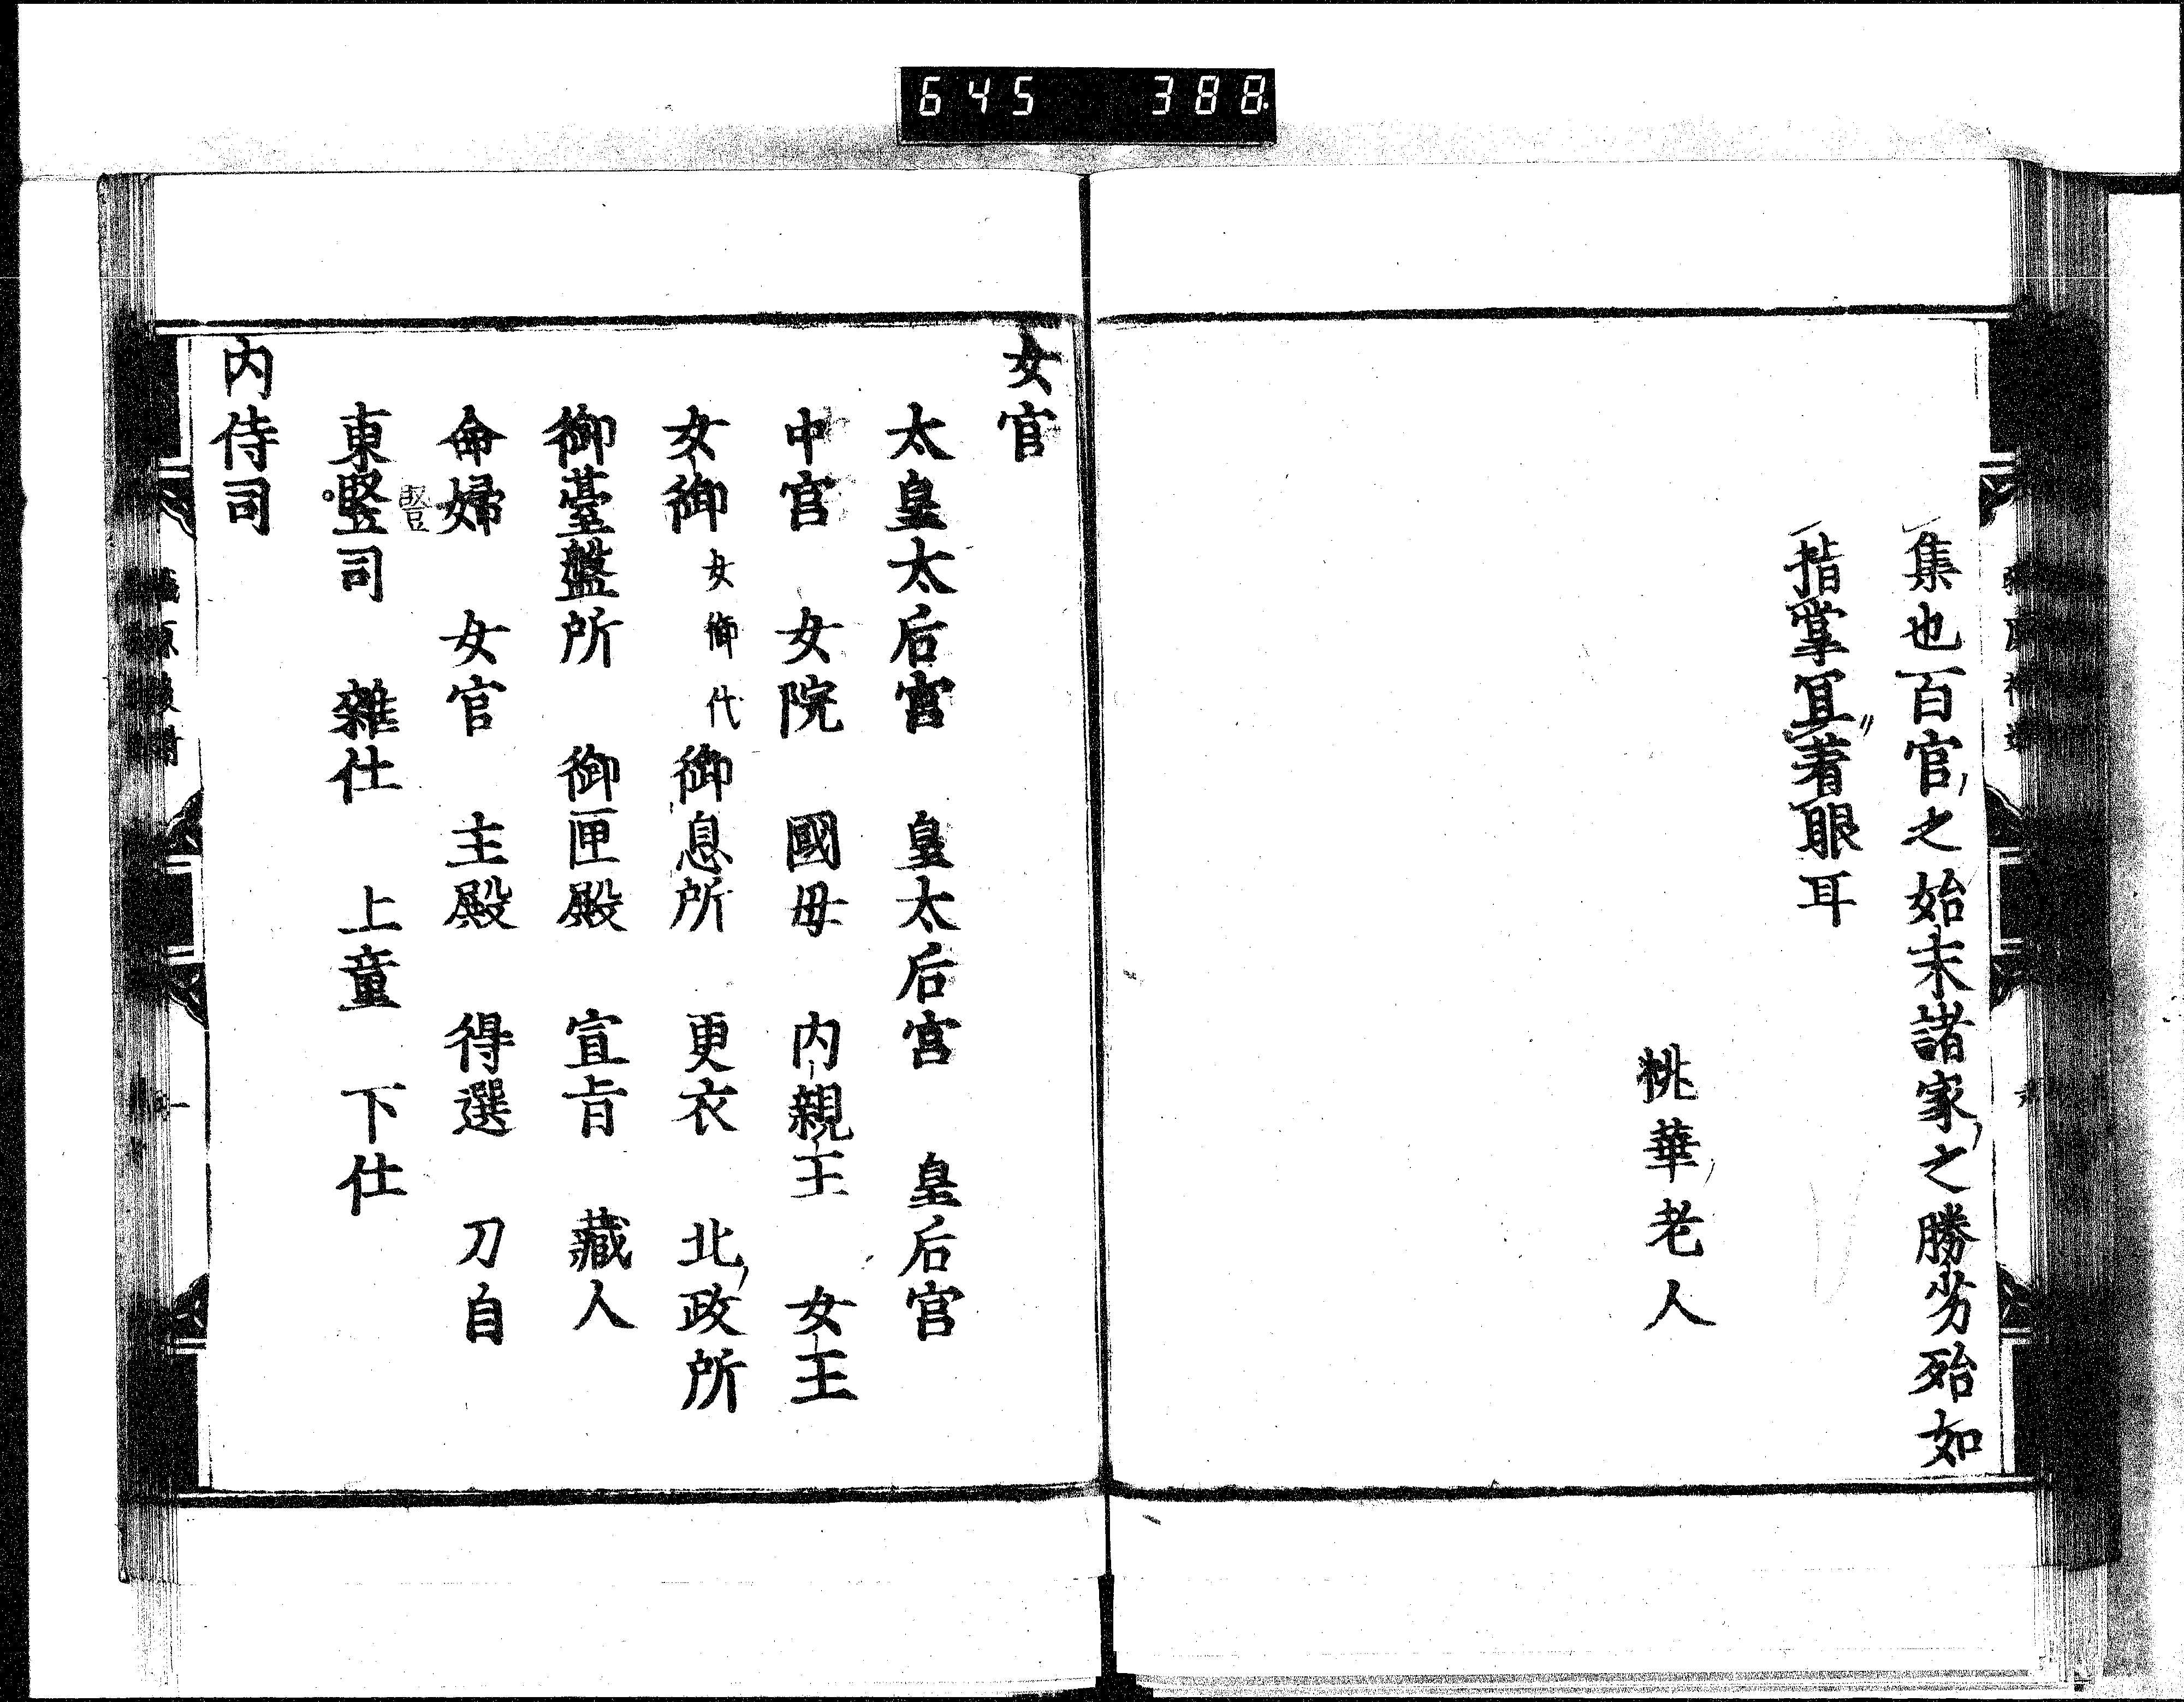 645 388
集也百官之始末諸家之勝劣殆如
指掌宜着眼耳
桃華老人
女官
太皇太后宮 皇太后宮 皇后宮
中宮 女院 國母 内親王 女王
女御 女御代 御息所 更衣 北政所
御臺盤所 御匣殿 宣旨 藏人
命婦 女官 主殿 得選 刀自
東豎司 雜仕 上童 下仕
豎
内侍司